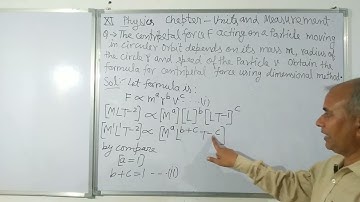 XI Physics Chapter - Units and Measurement
Q → The centripetal force F acting on a Particle moving
in circular orbit depends on its mass m, radius of
the circle r and speed of the Particle v. Obtain the
formula for centripetal force using dimensional method.
Sol: Let formula is:
F ∝ m^a r^b v^c --(1)
[MLT-2] ∝ [M^a][L]^b[LT-1]^c
[M^1L^1T-2] ∝ [M^a L^b+c T-c]
by compare
[a=1]
b+c=1 ---(11)